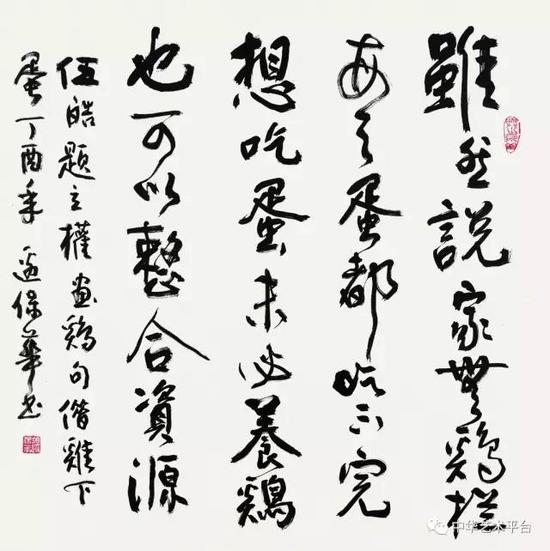 雖然說家無鷄
每天蛋都吃不完
想吃蛋未必養鷄
也可以整合資源
伍皓題立權画鷄句借雞下
蛋丁酉年保華书
中华艺术平台